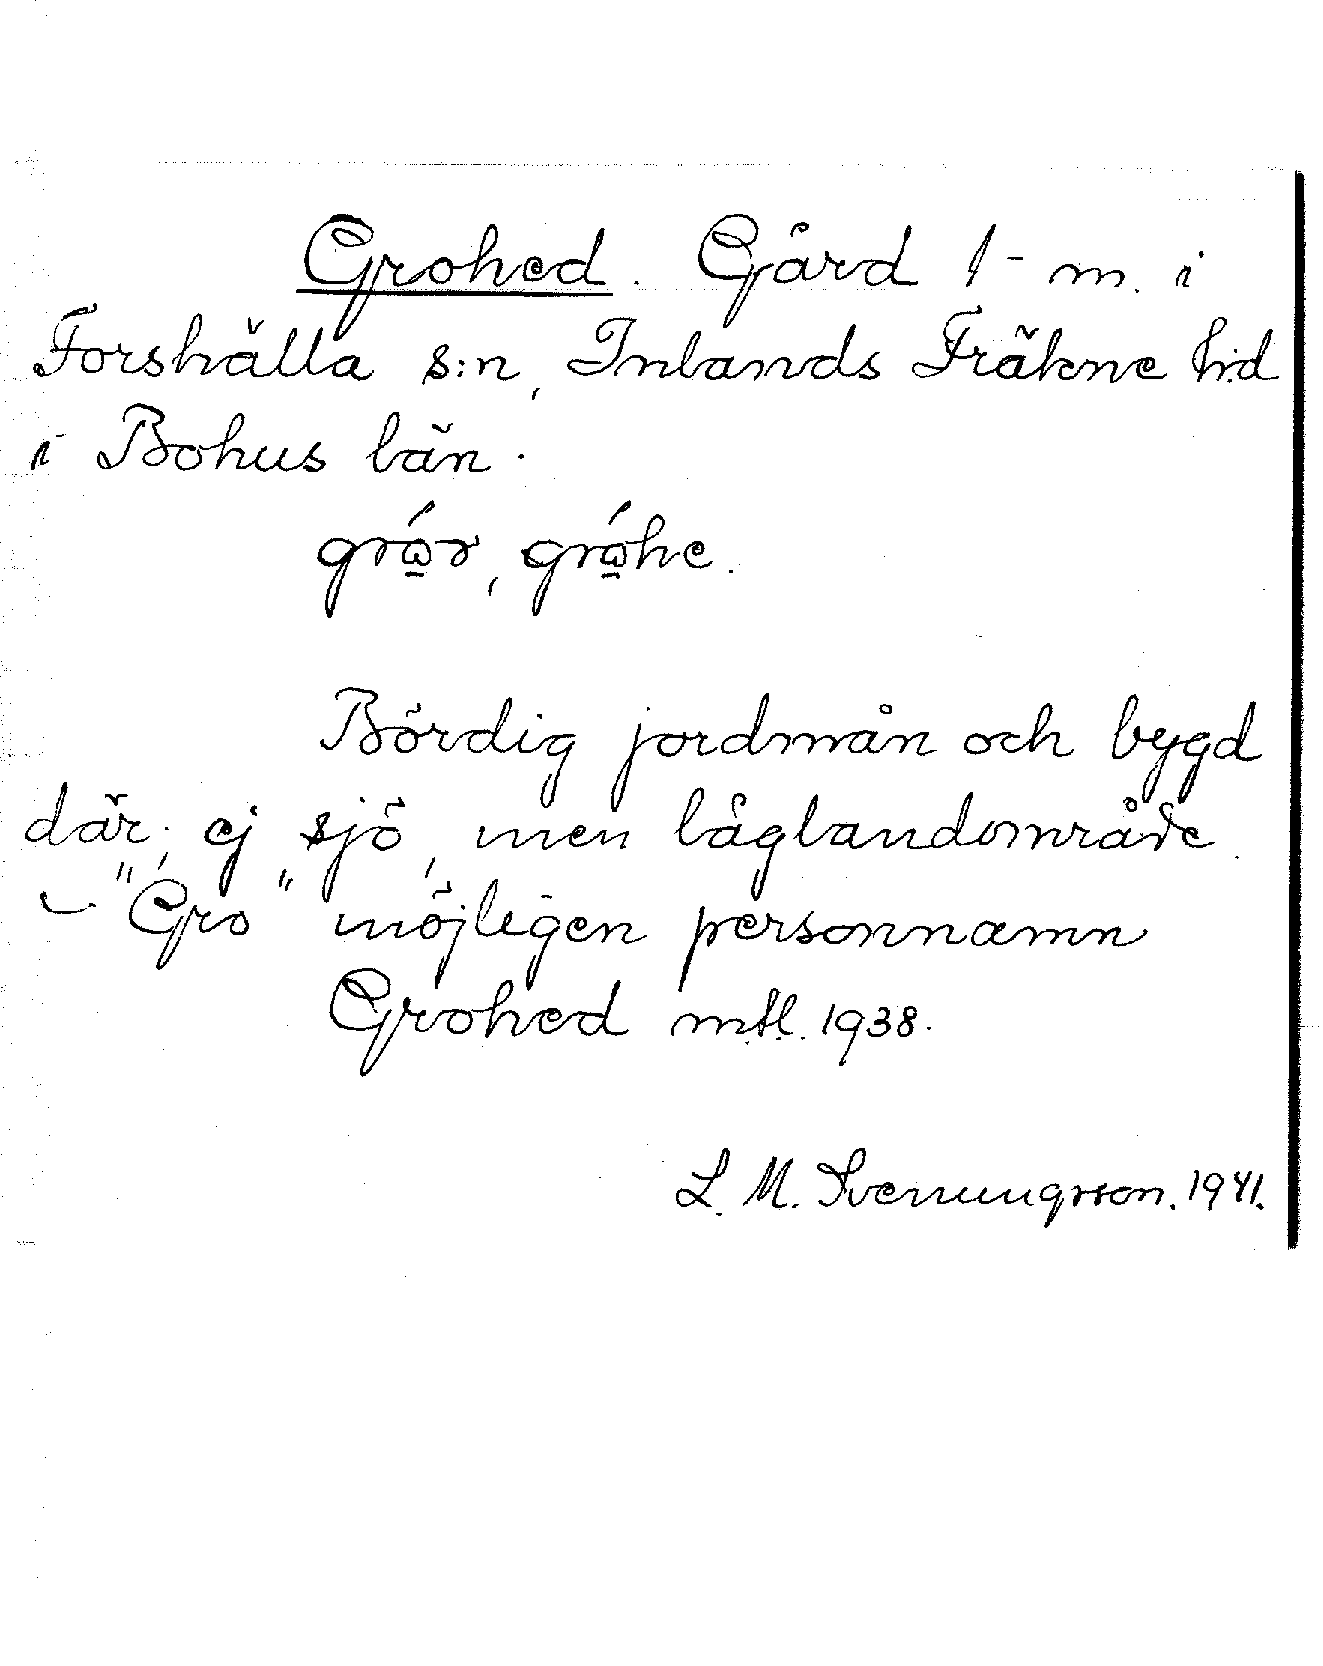 Grohed. Gård 1- m. i
Forshälla s:n, Inlands Fräkne h:d
i Bohus län.
grώ̲r, grώ̲he.
Bördig jordmån och bygd
där; ej sjö, men låglandområde.
– "Gro" möjligen personnamn
Grohed mtl. 1938.
L. M. Svenungsson. 1941.